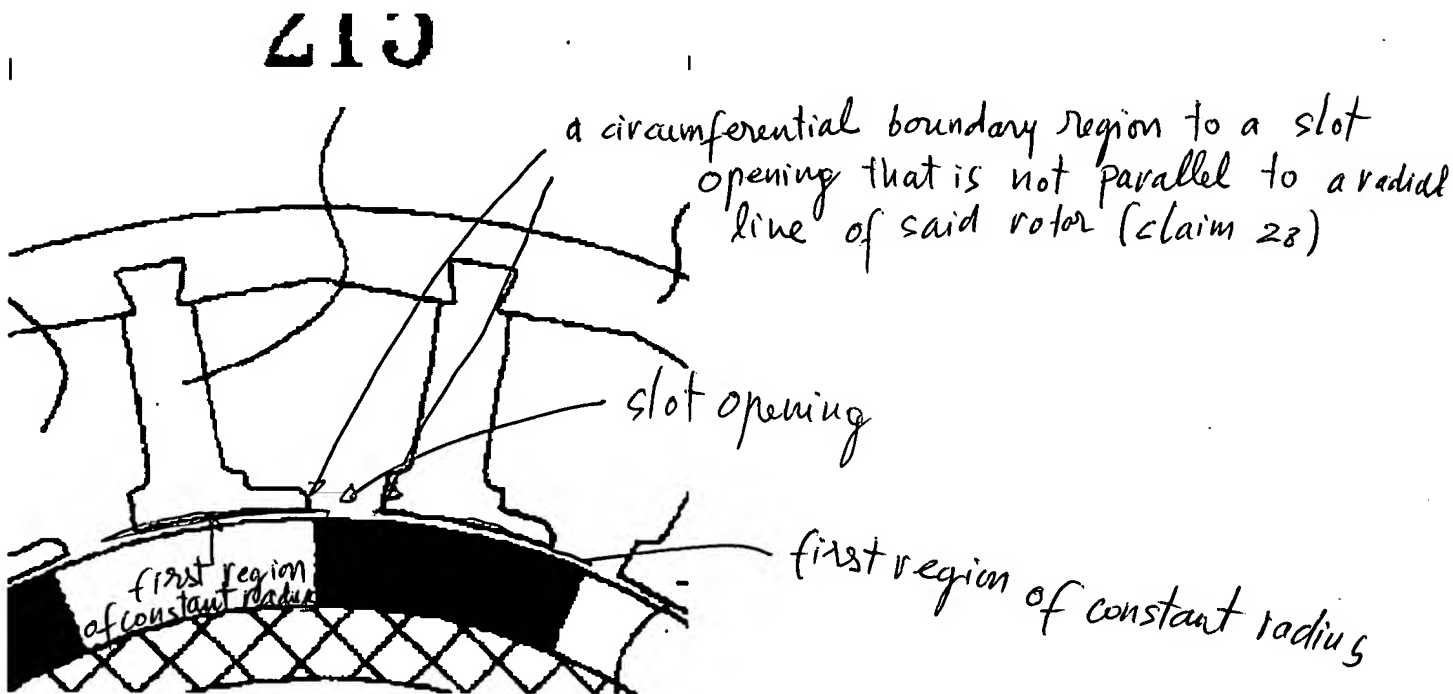 215
a circumferential boundary region to a slot
opening that is not parallel to a radial
line of said rotor (claim 28)
slot opening
first region
of constant radius
first region of constant radius